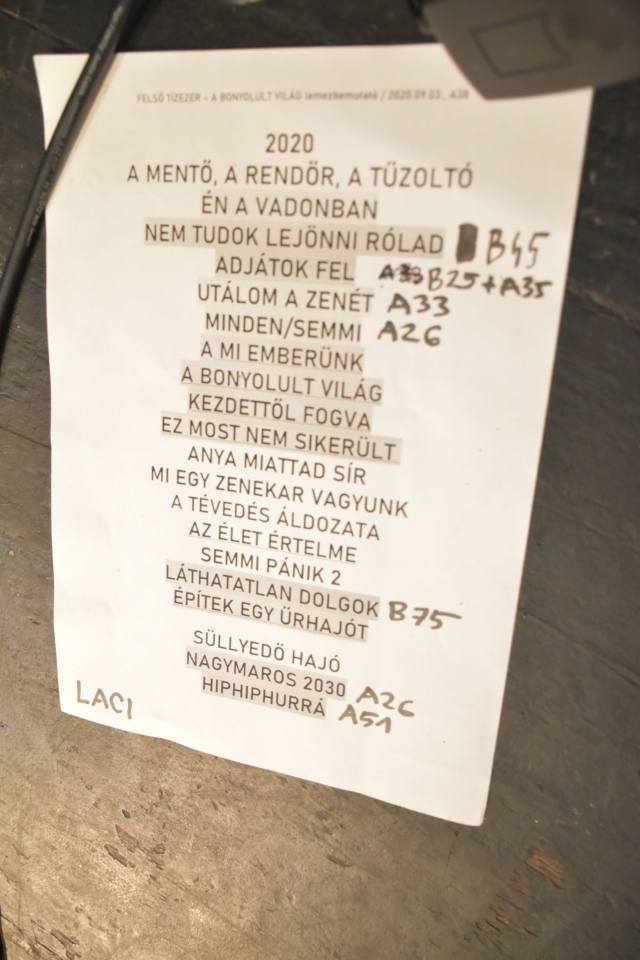 FELSŐ TÍZEZER – A BONYOLULT VILÁG lemezbemutató / 2020.09.03., A38
2020
A MENTŐ, A RENDŐR, A TŰZOLTÓ
ÉN A VADONBAN
NEM TUDOK LEJÖNNI RÓLAD B45
ADJÁTOK FEL A38 B25+A35
UTÁLOM A ZENÉT A33
MINDEN/SEMMI A26
A MI EMBERÜNK
A BONYOLULT VILÁG
KEZDETTŐL FOGVA
EZ MOST NEM SIKERÜLT
ANYA MIATTAD SÍR
MI EGY ZENEKAR VAGYUNK
A TÉVEDÉS ÁLDOZATA
AZ ÉLET ÉRTELME
SEMMI PÁNIK 2
LÁTHATATLAN DOLGOK B75
ÉPÍTEK EGY ŰRHAJÓT
SÜLLYEDŐ HAJÓ
NAGYMAROS 2030 A26
HIPHIPHURRÁ A51
LACI